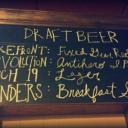 DRAFT BEER
KEFRONT: Fixed Gear Red
VOLUTION: Antihero IP
CH 19: Lager
NDERS: Breakfast S